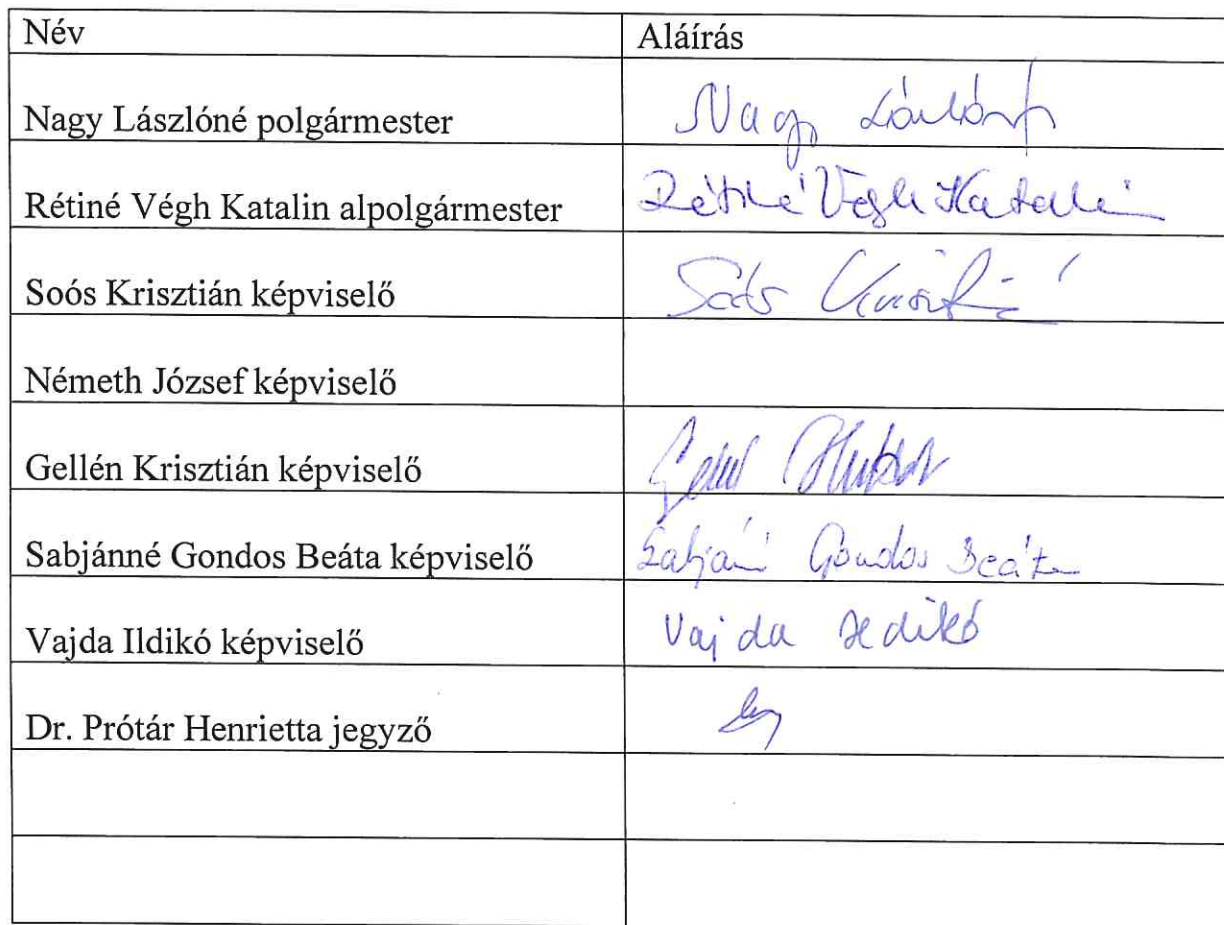 Név Aláírás
Nagy Lászlóné polgármester Nagy Lászlóné
Rétiné Végh Katalin alpolgármester Rétiné Végh Katalin
Soós Krisztián képviselő Soós Krisztián
Németh József képviselő
Gellén Krisztián képviselő
Sabjánné Gondos Beáta képviselő Sabjánné Gondos Beáta
Vajda Ildikó képviselő Vajda Ildikó
Dr. Prótár Henrietta jegyző